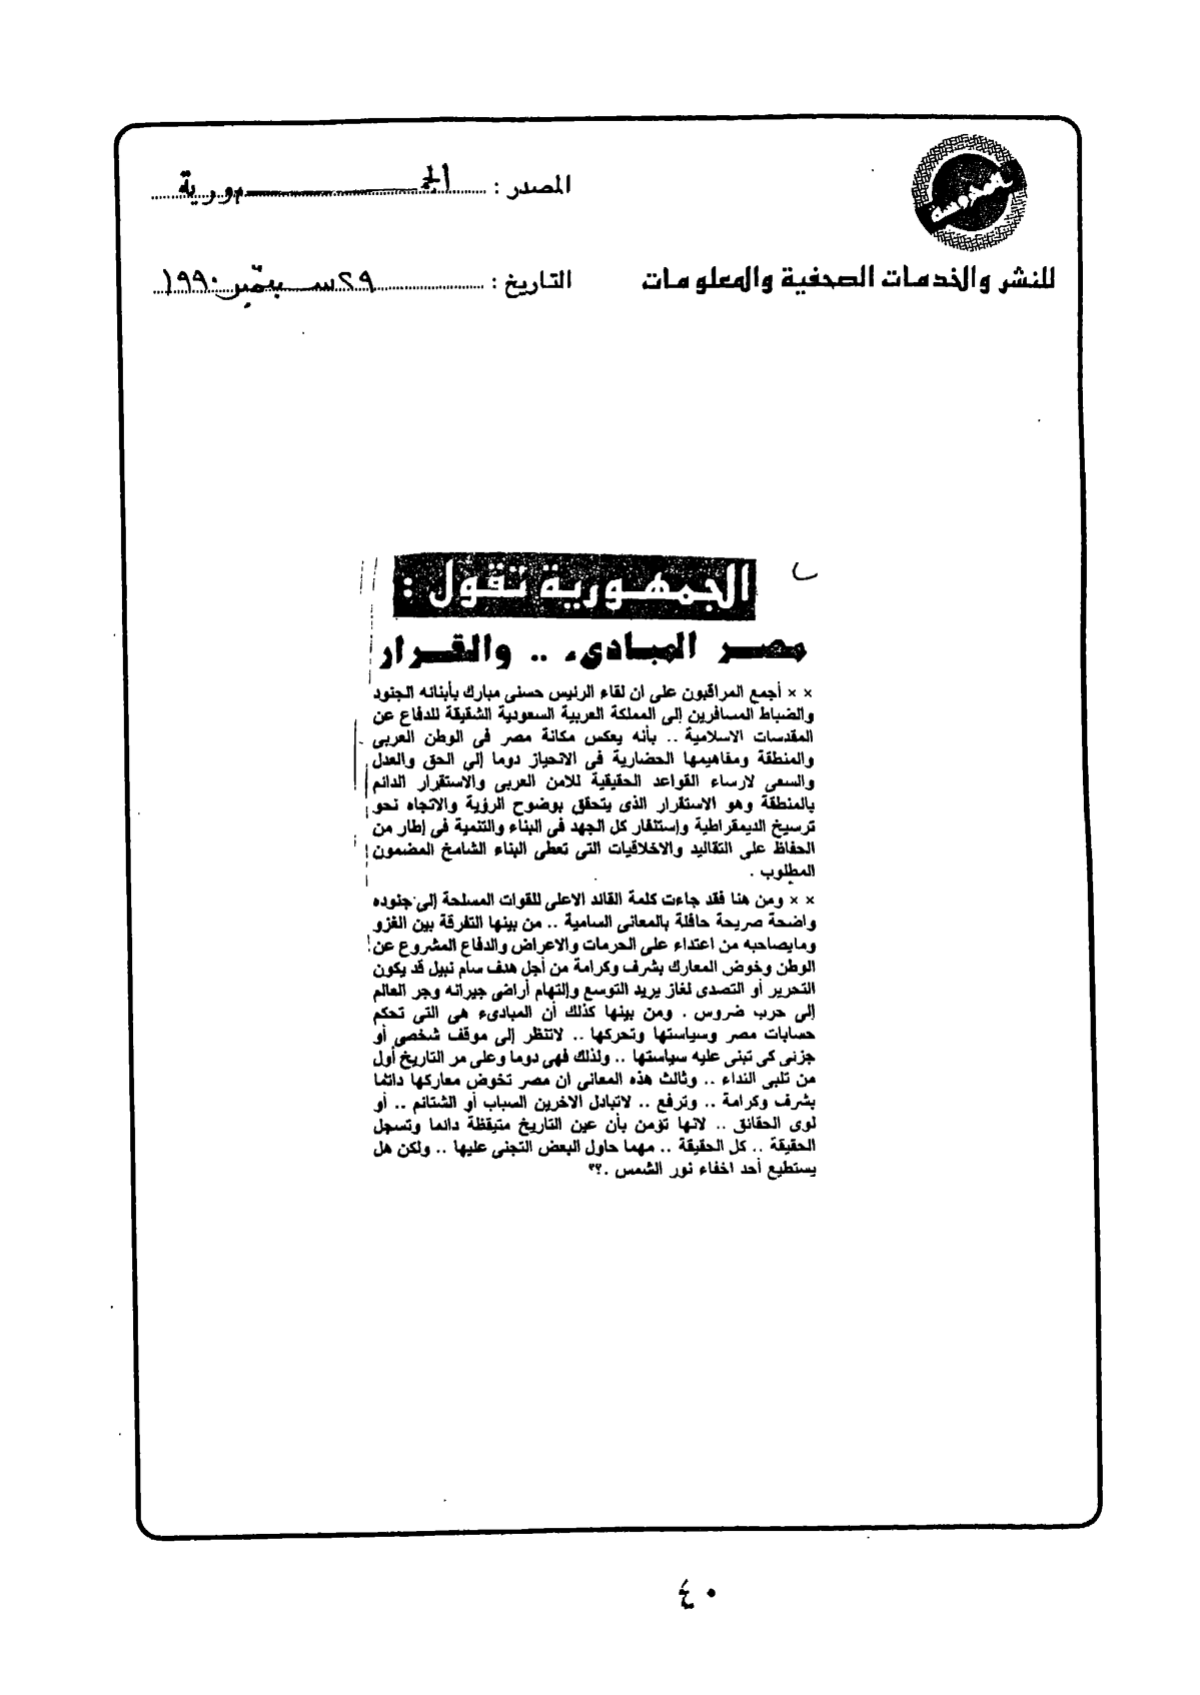 المحروسة
المصدر : الجمهورية
للنشر والخدمات الصحفية والمعلومات
التاريخ : ٢٩ سبتمبر ١٩٩٠
الجمهورية تقول :
مصر المبادىء .. والقرار
×× أجمع المراقبون على ان لقاء الرئيس حسنى مبارك بأبنائه الجنود
والضباط المسافرين إلى المملكة العربية السعودية الشقيقة للدفاع عن
المقدسات الاسلامية .. بأنه يعكس مكانة مصر فى الوطن العربى
والمنطقة ومفاهيمها الحضارية فى الانحياز دوما إلى الحق والعدل
والسعى لارساء القواعد الحقيقية للامن العربى والاستقرار الدائم
بالمنطقة وهو الاستقرار الذى يتحقق بوضوح الرؤية والاتجاه نحو
ترسيخ الديمقراطية وإستنفار كل الجهد فى البناء والتنمية فى إطار من
الحفاظ على التقاليد والاخلاقيات التى تعطى البناء الشامخ المضمون
المطلوب .
×× ومن هنا فقد جاءت كلمة القائد الاعلى للقوات المسلحة إلى جنوده
واضحة صريحة حافلة بالمعانى السامية .. من بينها التفرقة بين الغزو
ومايصاحبه من اعتداء على الحرمات والاعراض والدفاع المشروع عن
الوطن وخوض المعارك بشرف وكرامة من أجل هدف سام نبيل قد يكون
التحرير أو التصدى لغاز يريد التوسع وإلتهام أراضى جيرانه وجر العالم
إلى حرب ضروس . ومن بينها كذلك أن المبادىء هى التى تحكم
حسابات مصر وسياستها وتحركها .. لاتنظر إلى موقف شخصى أو
جزئى كى تبنى عليه سياستها .. ولذلك فهى دوما وعلى مر التاريخ أول
من تلبى النداء .. وثالث هذه المعانى ان مصر تخوض معاركها دائما
بشرف وكرامة .. وترفع .. لاتبادل الاخرين السباب أو الشتائم .. أو
لوى الحقائق .. لانها تؤمن بأن عين التاريخ متيقظة دائما وتسجل
الحقيقة .. كل الحقيقة .. مهما حاول البعض التجنى عليها .. ولكن هل
يستطيع أحد اخفاء نور الشمس .؟؟
٤٠